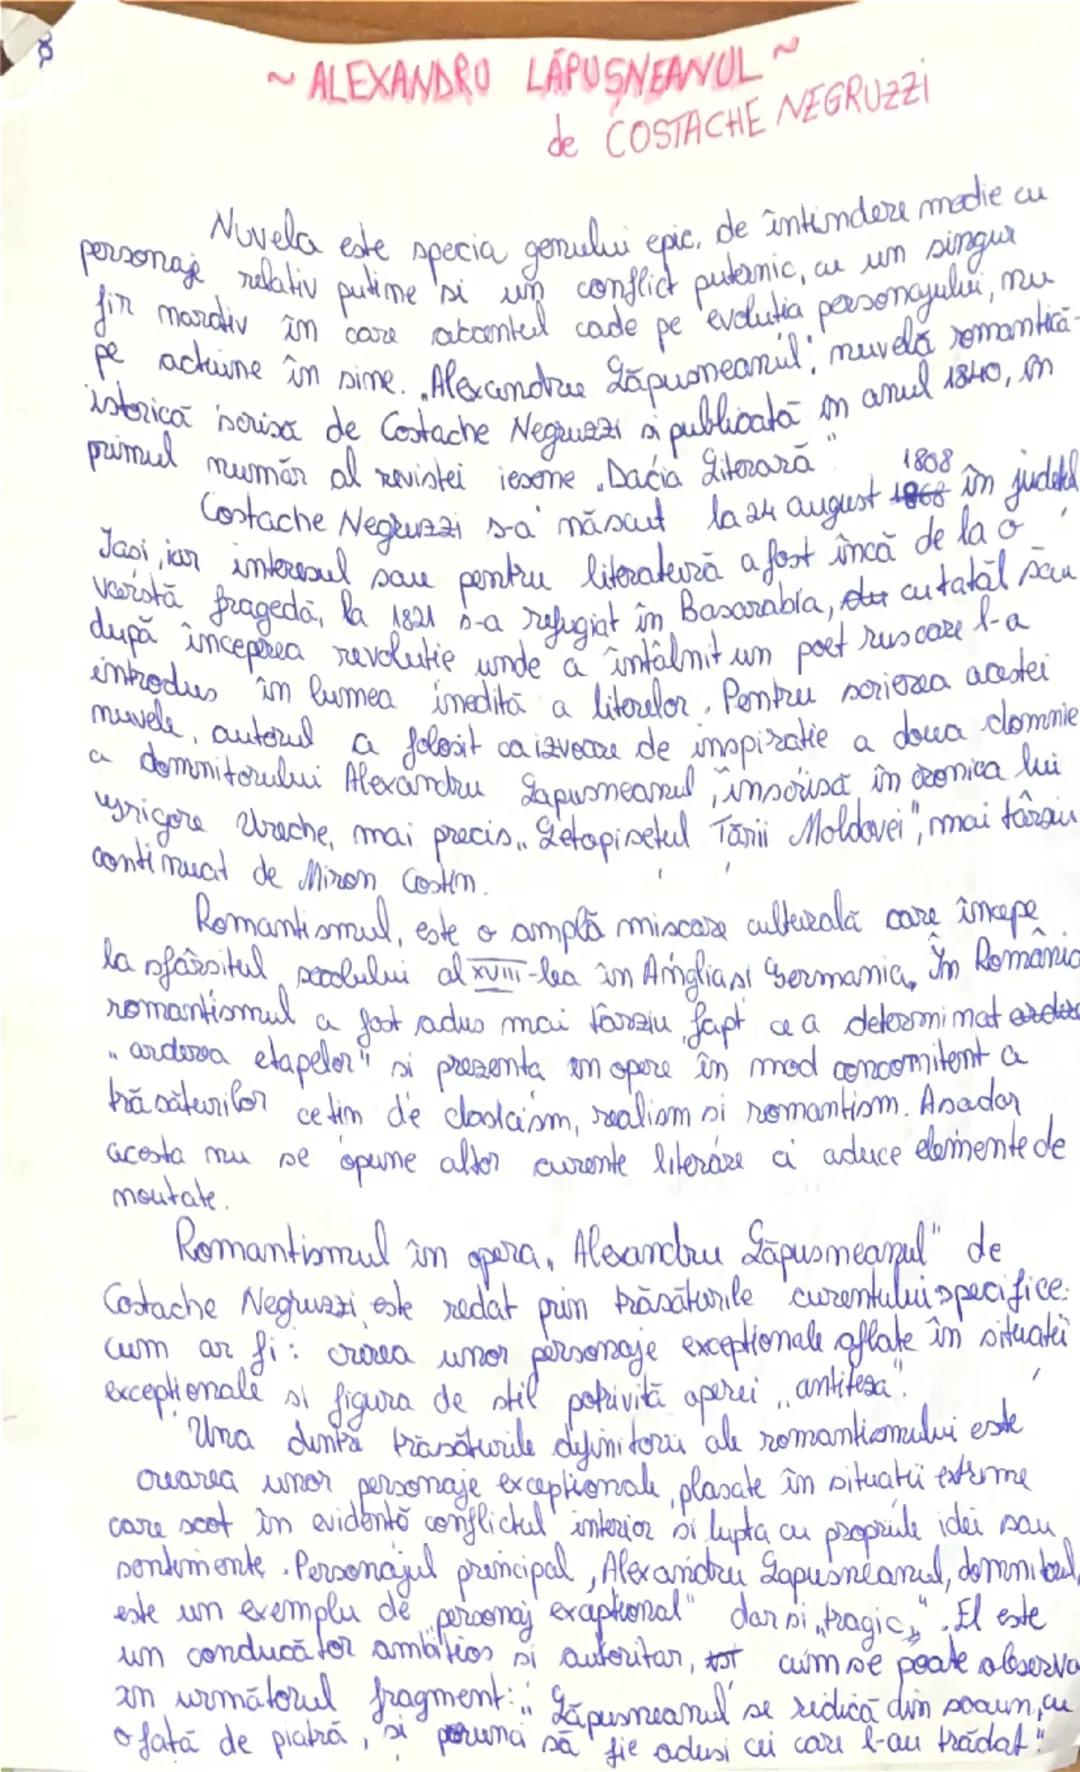 ~ ALEXANDRU LĂPUȘNEANUL ~
de COSTACHE NEGRUZZI
Nuvela este specia genului epic, de întindere medie cu
personaje relativ puține și un conflict puternic, cu un singur
fir narativ în care accentul cade pe evoluția personajului, nu
pe acțiune în sine. „Alexandru Lăpușneanul", nuvelă romantică-
istorică scrisă de Costache Negruzzi și publicată în anul 1840, în
primul număr al revistei ieșene „Dacia Literară"
Costache Negruzzi s-a născut la 24 august 1808 în județul
Iași, iar interesul sau pentru literatură a fost încă de la o
varstă fragedă, la 1821 s-a refugiat în Basarabia, cu tatăl său
după începerea revoluție unde a întâlnit un poet rus care l-a
introdus în lumea inedită a literelor. Pentru scrierea acestei
nuvele, autorul a folosit ca izvoare de inspirație a doua domnie
a domnitorului Alexandru Lapușneanul, înscrisă în cronica lui
Grigore Ureche, mai precis „Letopisețul Țării Moldovei", mai târziu
continuat de Miron Costin.
Romantismul, este o amplă mișcare culturală care începe
la sfârșitul secolului al XVIII-lea în Anglia și Germania. În România
romantismul a fost adus mai târziu, fapt ce a determinat
„arderea etapelor" și prezența în opere în mod concomitent a
trăsăturilor ce țin de clasicism, realism și romantism. Așadar
acesta nu se opune altor curente literare ci aduce elemente de
noutate.
Romantismul în opera „Alexandru Lăpușneanul" de
Costache Negruzzi, este redat prin trăsăturile curentului specifice:
cum ar fi: crearea unor personaje excepționale aflate în situații
excepționale și figura de stil potrivită operei „antiteza".
Una dintre trăsăturile definitorii ale romantismului este
crearea unor personaje excepționale, plasate în situații extreme
care scot în evidență conflictul interior și lupta cu propriile idei sau
sentimente. Personajul principal, Alexandru Lapușneanul, domnitorul,
este un exemplu de „personaj excepțional" dar și „tragic". El este
un conducător ambițios și autoritar, cum se poate observa
în următorul fragment: „Lăpușneanul se ridică din scaun, cu
o față de piatră, și porunci să fie aduși cei care l-au trădat"